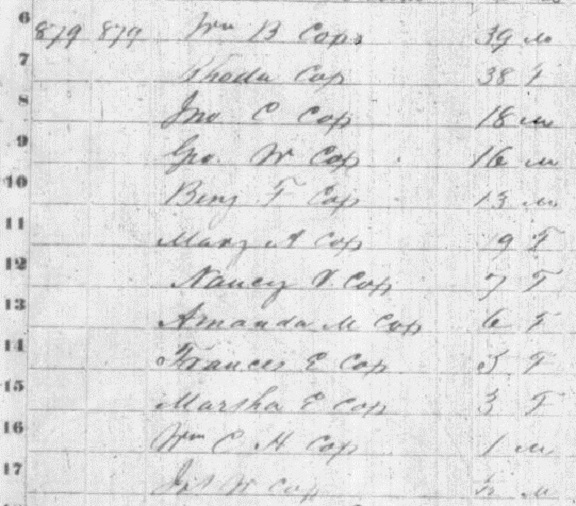 6 879 879 Wm B Cop 39 M
7 Rhoda Cop 38 F
8 Jno C Cop 18 M
9 Geo. W Cop 16 M
10 Benj F Cop 13 M
11 Mary A Cop 9 F
12 Nancy Cop 7 F
13 Amanda M Cop 6 F
14 Frances E Cop 5 F
15 Marsha E Cop 3 F
16 Wm C H Cop 1 M
17 W Cop M